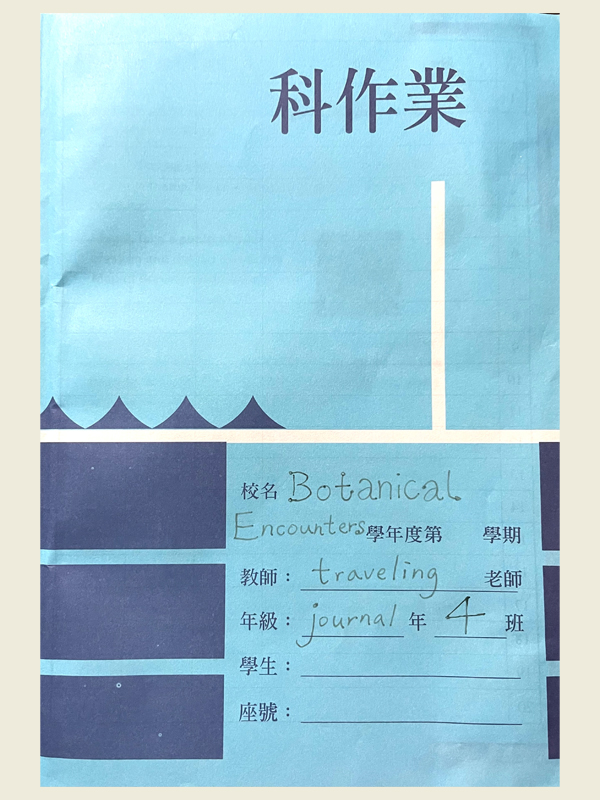 科作業
校名 Botanical
Encounters學年度第 學期
教師： traveling 老師
年級： journal 年 4 班
學生：
座號：